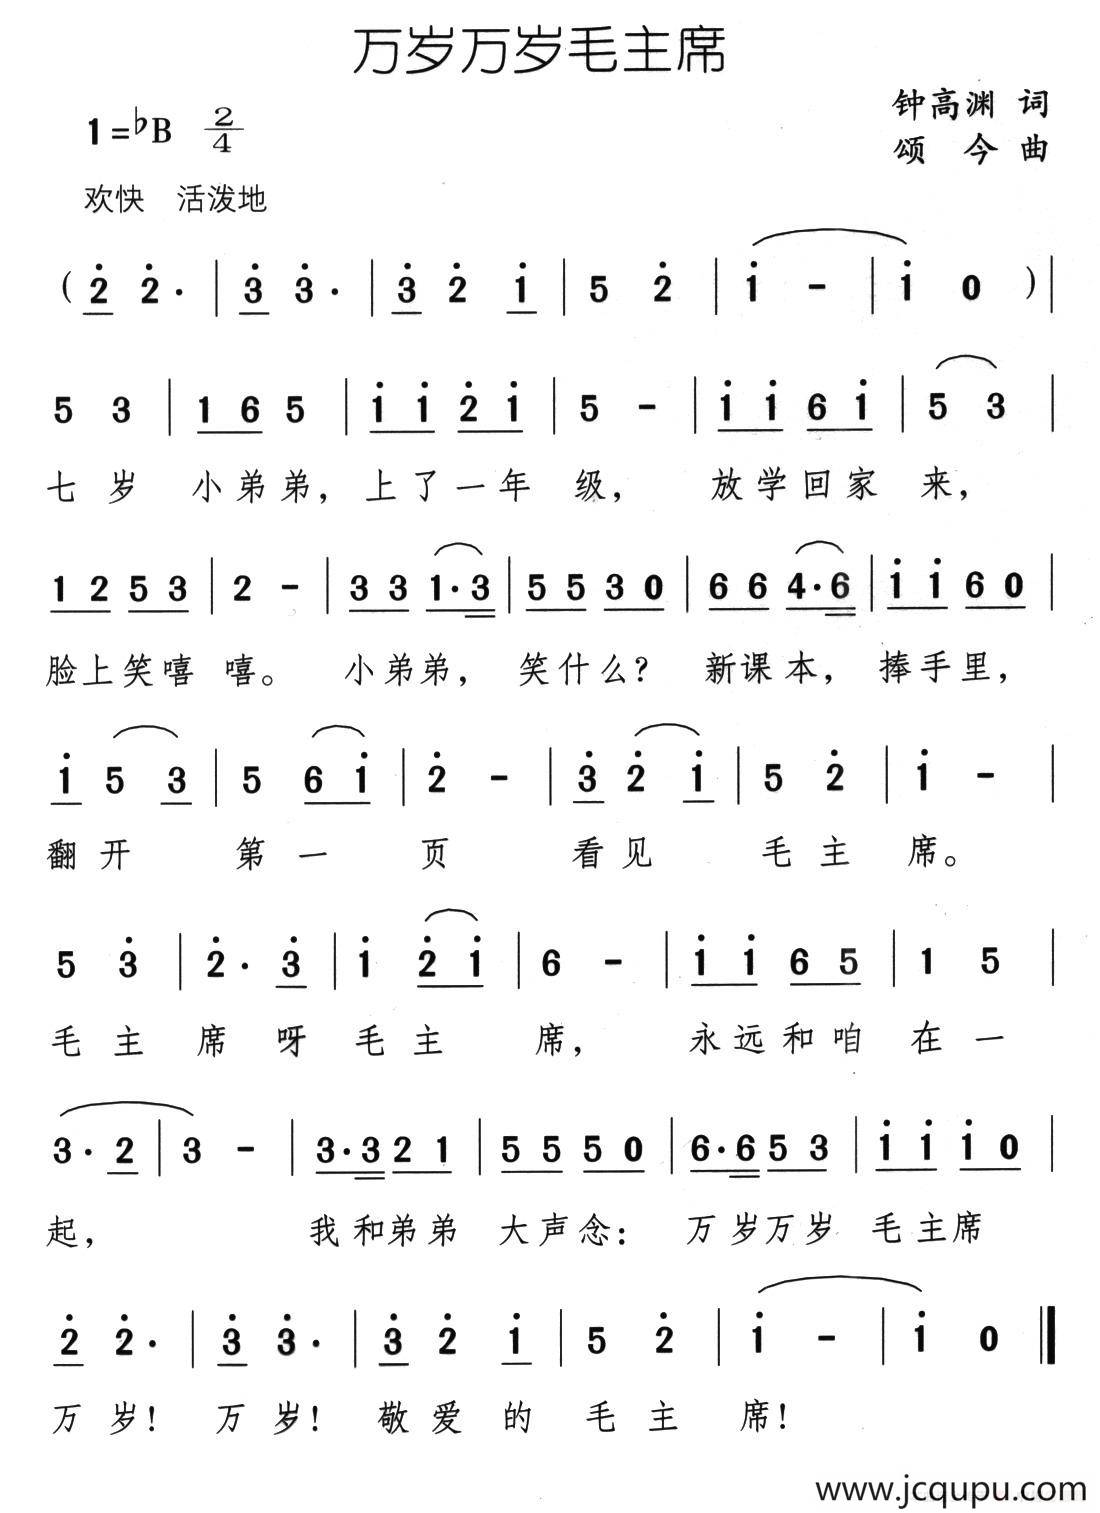 万岁万岁毛主席
钟高渊 词
1=♭B 2/4
颂 今 曲
欢快 活泼地
( 2̇ 2̇· | 3̇ 3̇· | 3̇ 2̇ 1̇ | 5 2̇ | 1̇ - | 1̇ 0 ) |
5 3 | 1 6 5 | 1̇ 1̇ 2̇ 1̇ | 5 - | 1̇ 1̇ 6 1̇ | 5 3 |
七岁 小弟弟，上了一年 级， 放学回家 来，
1 2 5 3 | 2 - | 3 3 1·3 | 5 5 3 0 | 6 6 4·6 | 1̇ 1̇ 6 0 |
脸上笑嘻 嘻。 小弟弟， 笑什么？ 新课本， 捧手里，
1̇ 5 3 | 5 6 1̇ | 2̇ - | 3̇ 2̇ 1̇ | 5 2̇ | 1̇ - |
翻开 第一 页 看见 毛主 席。
5 3̇ | 2̇· 3̇ | 1̇ 2̇ 1̇ | 6 - | 1̇ 1̇ 6 5 | 1 5 |
毛主 席呀 毛主 席， 永远和咱 在一
3· 2 | 3 - | 3·3 2 1 | 5 5 5 0 | 6·6 5 3 | 1̇ 1̇ 1̇ 0 |
起， 我和弟弟 大声念： 万岁万岁 毛主席
2̇ 2̇· | 3̇ 3̇· | 3̇ 2̇ 1̇ | 5 2̇ | 1̇ - | 1̇ 0 ‖
万岁！ 万岁！ 敬爱的 毛主 席！
www.jcqupu.com